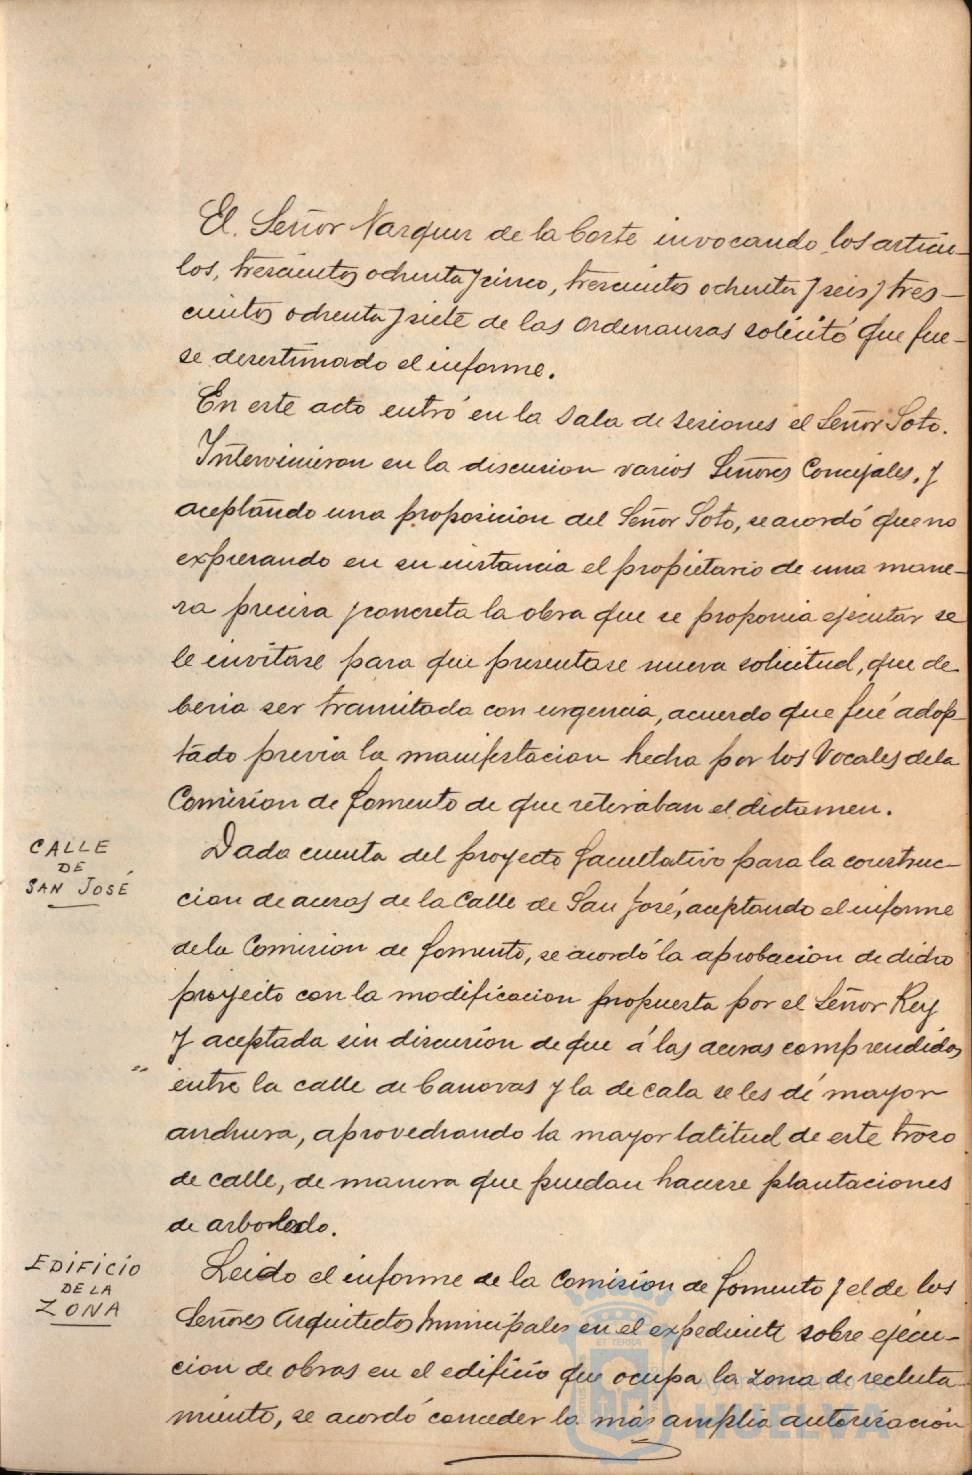 El Señor Vazquez de la Corte invocando los artícu-
los, trescientos ochenta y cinco, trescientos ochenta y seis y tres-
cientos ochenta y siete de las Ordenanzas solicitó que fue-
se desestimado el informe.
En este acto entró en la Sala de sesiones el Señor Soto.
Intervinieron en la discusion varios Señores Concejales, y
aceptando una proposicion del Señor Soto, se acordó que no
expresando en su instancia el propietario de una mane-
ra precisa y concreta la obra que se proponia ejecutar se
le invitase para que presentase nueva solicitud, que de
beria ser tramitada con urgencia, acuerdo que fué adop-
tado previa la manifestacion hecha por los Vocales de la
Comisión de fomento de que retiraban el dictamen.
CALLE
DE
SAN JOSÉ
Dada cuenta del proyecto facultativo para la construc-
cion de aceras de la Calle de San José, aceptando el informe
de la Comision de fomento, se acordó la aprobacion de dicho
proyecto con la modificacion propuesta por el Señor Rey
y aceptada sin discusión de que á las aceras comprendidas
entre la calle de Canovas y la de cala se les dé mayor
anchura, aprovechando la mayor latitud de este trozo
de calle, de manera que puedan hacerse plantaciones
de arbolado.
EDIFICIO
DE LA
ZONA
Leido el informe de la Comisión de fomento y el de los
Señores Arquitectos Municipales en el expediente sobre ejecu-
cion de obras en el edificio que ocupa la zona de recluta-
miento, se acordó conceder la más amplia autorización
Ayuntamiento de
HUELVA